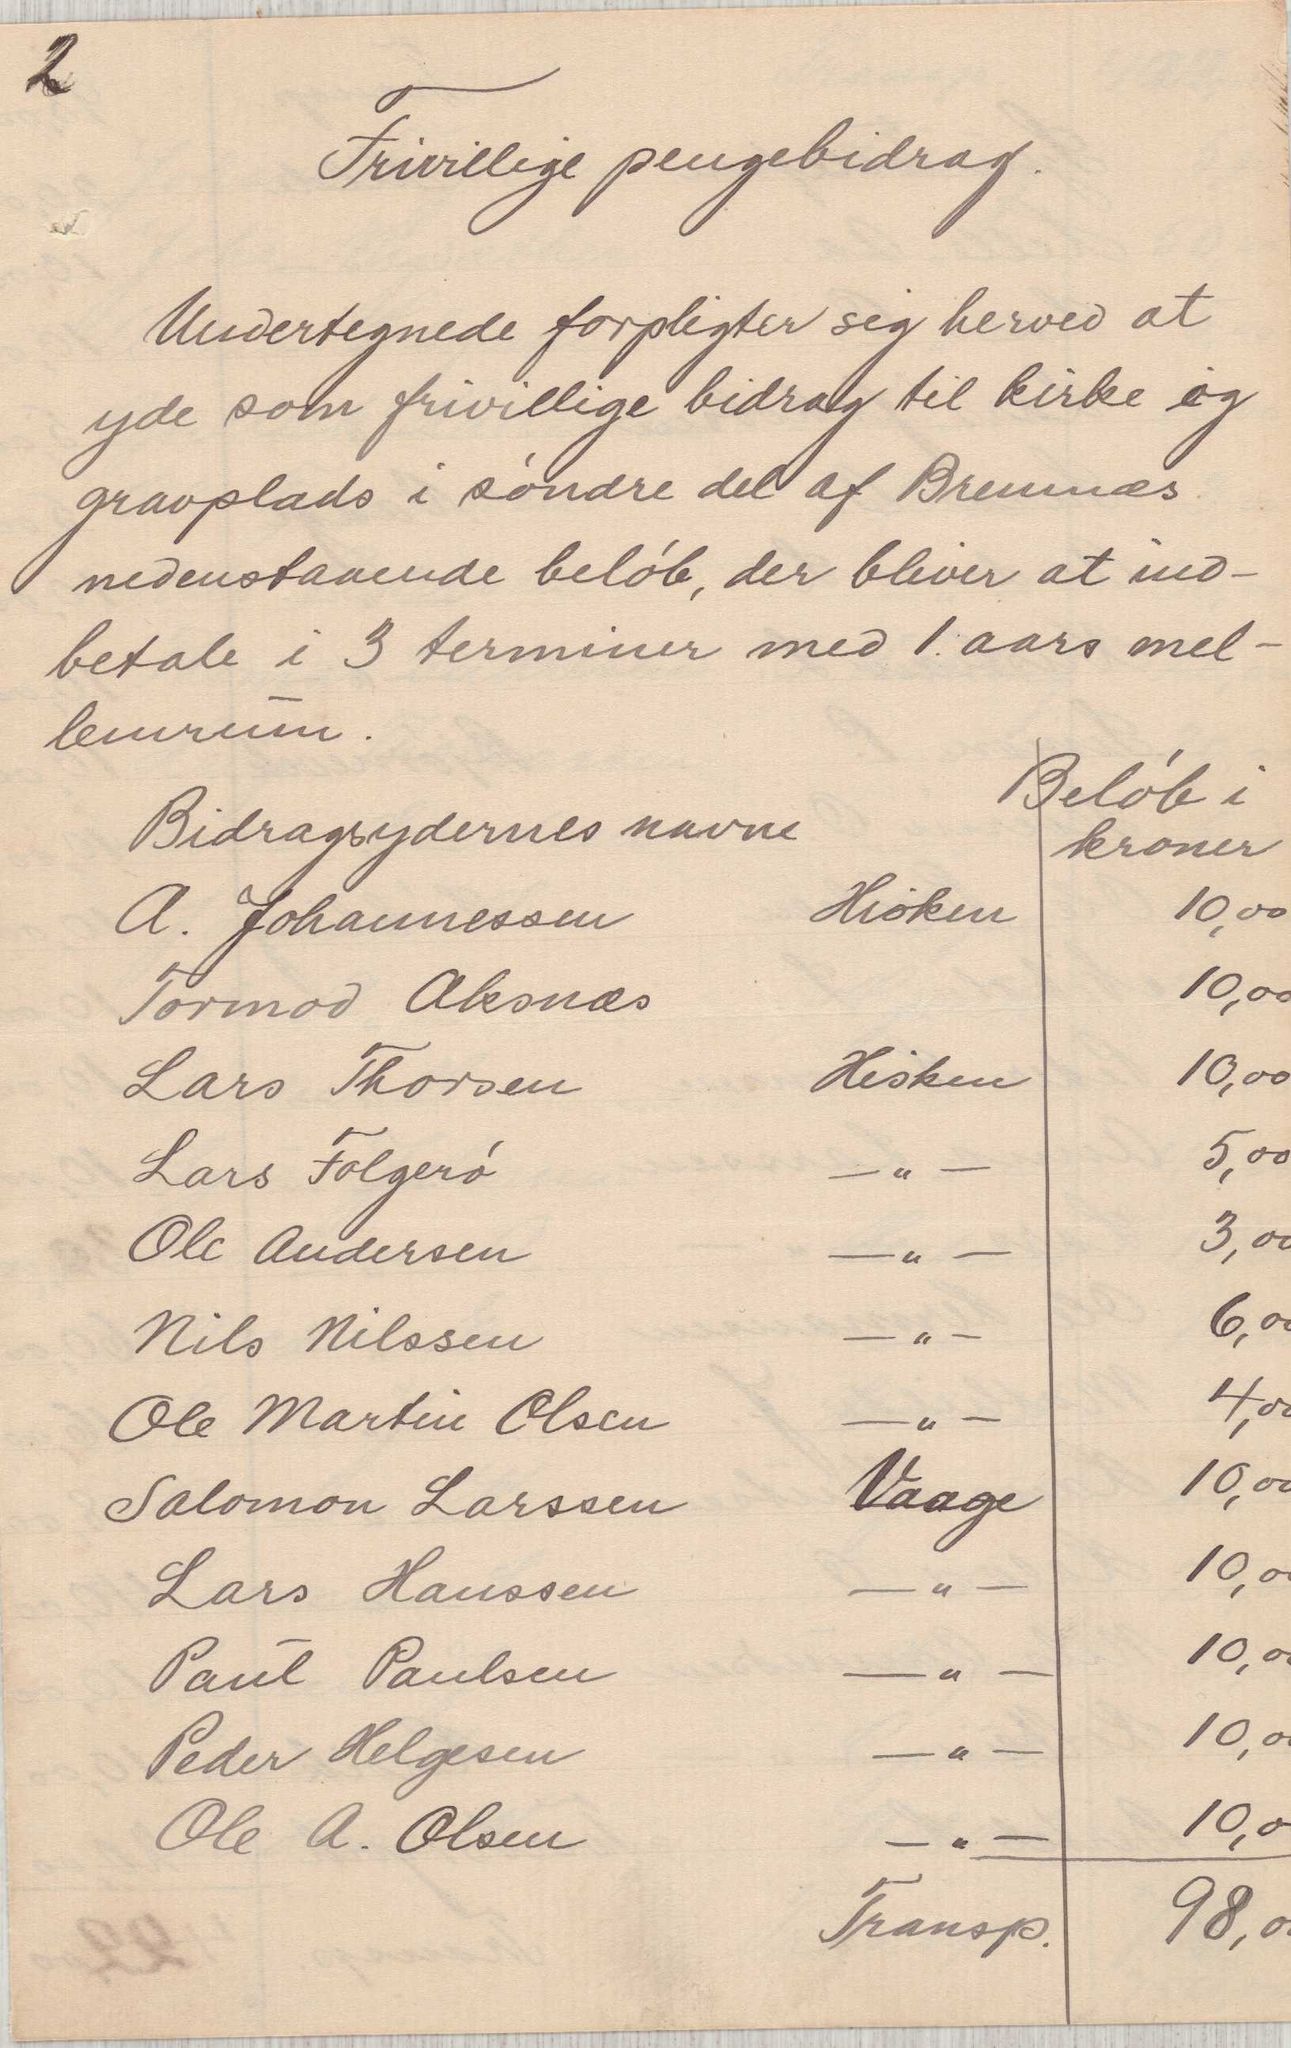 2
Frivillige pengebidrag.
Undertegnede forpligter sig herved at
yde som frivillige bidrag til kirke og
gravplads i söndre del af Bremnæs
nedenstaaende belöb, der bliver at ind-
betale i 3 terminer med 1. aars mel-
lemrum.
Bidragsydernes navne Belöb i
kroner
A. Johannessen Hisken 10,00
Tormod Aksnæs 10,00
Lars Thorsen Hisken 10,00
Lars Folgerö —"— 5,00
Ole Andersen —"— 3,00
Nils Nilssen —"— 6,00
Ole Martin Olsen —"— 4,00
Salomon Larssen Vaage 10,00
Lars Hanssen —"— 10,00
Paul Paulsen —"— 10,00
Peder Helgesen —"— 10,00
Ole A. Olsen —"— 10,0
Transp. 98,0